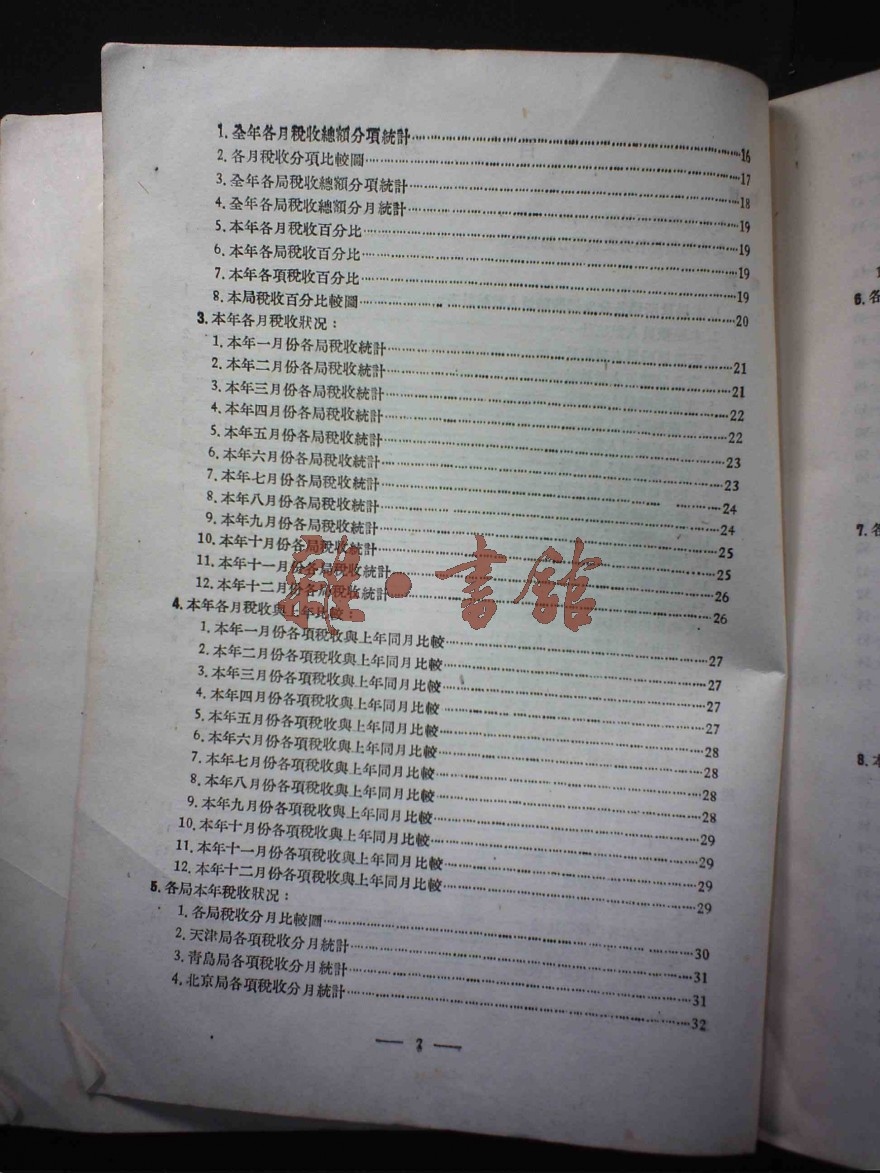 1. 全年各月稅收總額分項統計……16
2. 各月稅收分項比較圖……17
3. 全年各局稅收總額分項統計……18
4. 全年各局稅收總額分月統計……19
5. 本年各月稅收百分比……19
6. 本年各局稅收百分比……19
7. 本年各項稅收百分比……19
8. 本局稅收百分比較圖……20
3. 本年各月稅收狀況：
1. 本年一月份各局稅收統計……21
2. 本年二月份各局稅收統計……21
3. 本年三月份各局稅收統計……22
4. 本年四月份各局稅收統計……22
5. 本年五月份各局稅收統計……23
6. 本年六月份各局稅收統計……23
7. 本年七月份各局稅收統計……24
8. 本年八月份各局稅收統計……24
9. 本年九月份各局稅收統計……25
10. 本年十月份各局稅收統計……25
11. 本年十一月份各局稅收統計……26
12. 本年十二月份各局稅收統計……26
4. 本年各月稅收與上年比較：
1. 本年一月份各項稅收與上年同月比較……27
2. 本年二月份各項稅收與上年同月比較……27
3. 本年三月份各項稅收與上年同月比較……27
4. 本年四月份各項稅收與上年同月比較……27
5. 本年五月份各項稅收與上年同月比較……28
6. 本年六月份各項稅收與上年同月比較……28
7. 本年七月份各項稅收與上年同月比較……28
8. 本年八月份各項稅收與上年同月比較……28
9. 本年九月份各項稅收與上年同月比較……29
10. 本年十月份各項稅收與上年同月比較……29
11. 本年十一月份各項稅收與上年同月比較……29
12. 本年十二月份各項稅收與上年同月比較……29
5. 各局本年稅收狀況：
1. 各局稅收分月比較圖……30
2. 天津局各項稅收分月統計……31
3. 青島局各項稅收分月統計……31
4. 北京局各項稅收分月統計……32
6. 各
7. 各
8. 本
書館